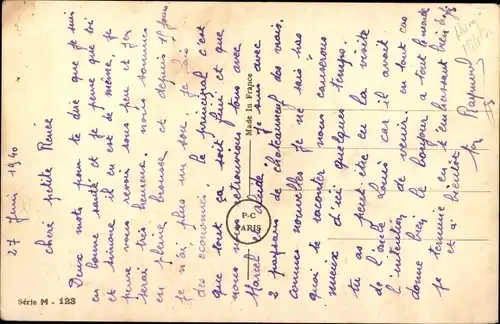 27 Juin 1940
cheré petite Renée
Deux mots pour te dire que je suis
en bonne santé et je pense que toi
et simone il en est de même, je
pense vous revoir sous peu et j'en
serai très heureux. nous sommes
en pleine brousse et depuis 15 jours
je n'ai plus un sou. je fais
des économies. le principal c'est
que tout ça soit fini et que
nous nous retrouvions tous avec
Marcel je suis avec
2 paysans de chateauneuf des vrais.
comme nouvelles je ne sais pas
quoi te raconter nous causerons
mieux d'ici quelques temps.
tu as peut être eu la visite
de l'oncle Louis car il avait
l'intention de venir. en tout cas
donne bien le bonjour a tout le monde
je termine en t'embrassant bien fort
et à bientôt
Raymond
Made In France
P-C
PARIS
Série M - 123